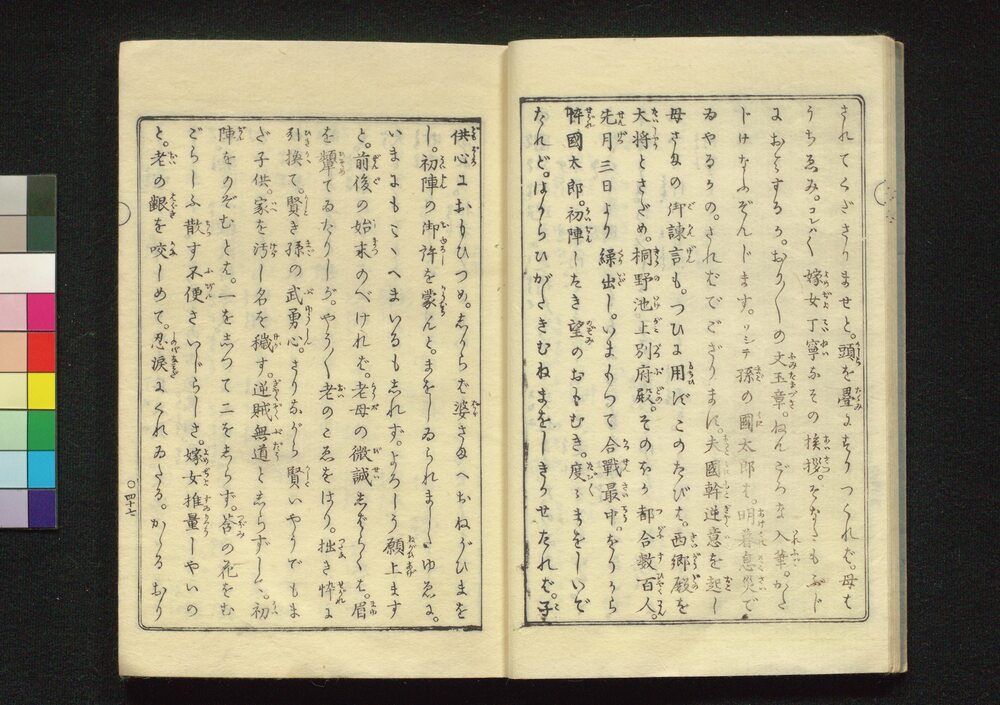 されてくだささりませと。頭を疊にすりつくれば。母も
うちゑみ。コレハ〳〵嫁女丁寧なその挨拶。そなたもぶじ
におとするか。おり〳〵の文玉章。ねんごろな入筆。かた
じけなふぞんじます。ソシテ孫の國太郎も。明暮息災で
ゐやるかの。さればでござりまする。夫國幹逆意を起し
母さまの御諫言も。つひに用ばこのたびは。西郷殿を
大将とさだめ。桐野池上別府殿。そのほか都合数百人。
先月三日より繰出し。いまもつて合戰最中。そりから
忰國太郎。初陣したき望のおもむき。度々まをしいで
たれど。はからひがたきむねまをしきかせたれば。子
供心におもひつめ。しからば婆さまへおねがひまを
し。初陣の御許を蒙んと。まをしゐられましたゆゑに。
いまにもこゝへまいるもしれず。よろしう願上ます
と。前後の始末のべければ。老母の微誠しばらくは。眉
を顰てゐたりしが。やう〳〵老のこゑをはり。拙き忰に
引換て。賢き孫の武勇心。さりながら賢いやうでもま
だ子供。家を汚し名を穢す。逆賊無道としらずして。初
陣をのぞむとは。一をしつて二をしらず。莟の花をむ
ごらしふ散す不便さいじらしさ。嫁女推量しやいの
と。老の齦を咬しめて。忍涙にくれゐたる。かゝるおり
〇四十七